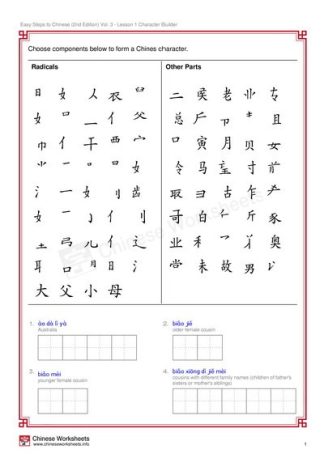 Easy Steps to Chinese (2nd Edition) Vol. 3 - Lesson 1 Character Builder
Choose components below to form a Chines character.
Radicals
Other Parts
日 女 人 衣 口 二 侯 老 业
女 口 一 亻 父 总 尸 卩 且
巾 亻 干 西 宀 口 寅 月 贝 女
令 马 寸
氵 女 刂 齿 取 彐 古 乍
女 亻 刂 哥 白 斤
土 弓 儿 亻 辶 业 禾 奥
耳 口 日 氵 未 故 男
大 父 小 母
1. ào dà lì yà
Australia
2. biǎo jiě
older female cousin
3. biǎo mèi
younger female cousin
4. biǎo xiōng dì jiě mèi
cousins with different family names (children of father's
sisters or mother's siblings)
Chinese Worksheets
Chinese Worksheets
www.chineseworksheets.info
1